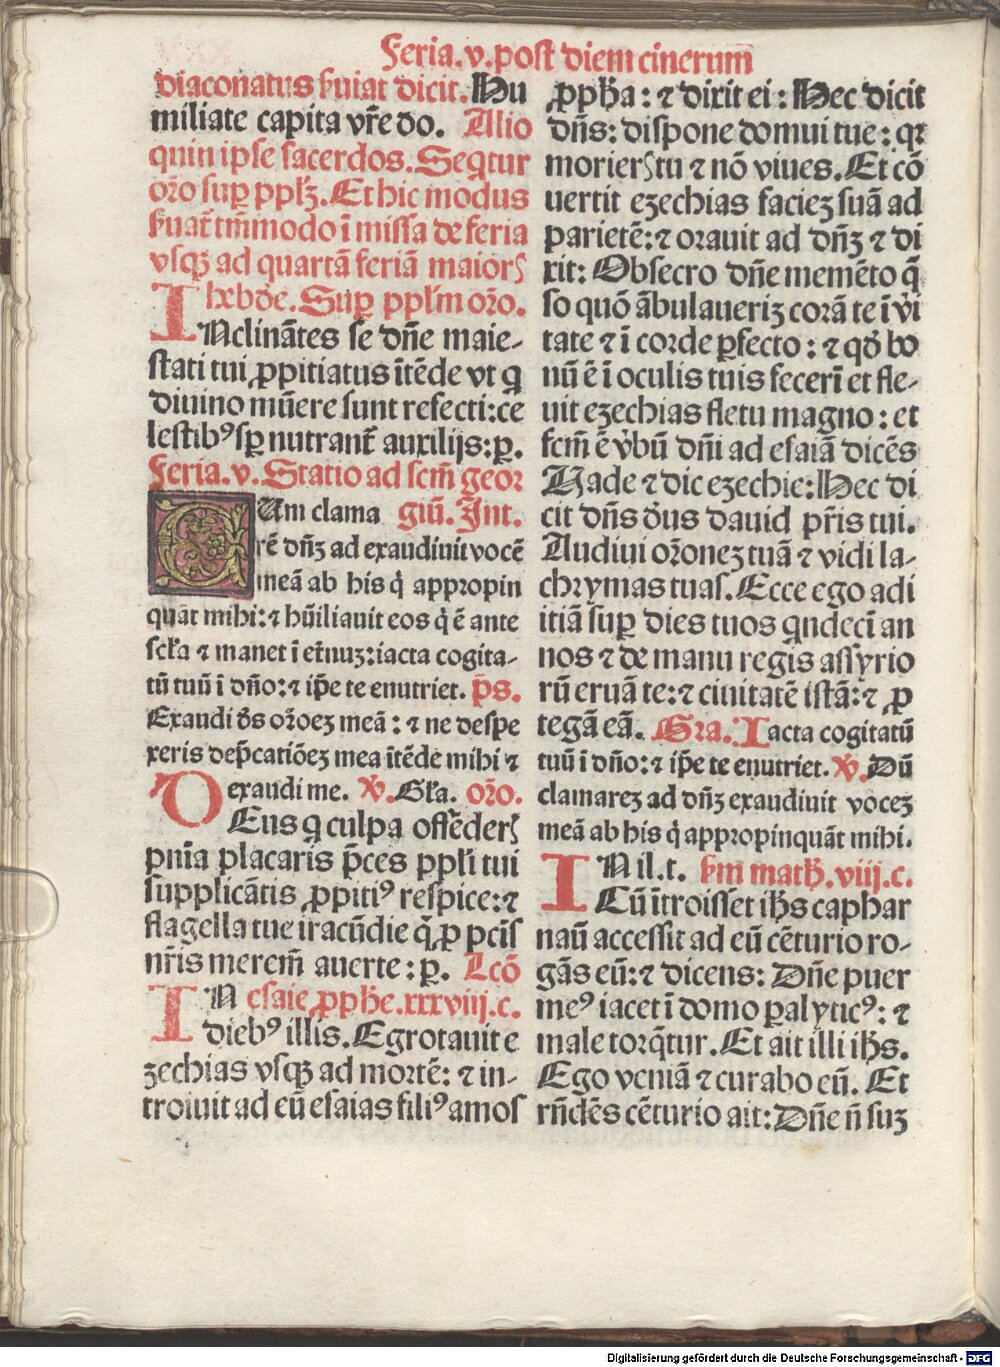 Feria.v.post diem cinerum̄
diaconatus ẜuiat dicit. Hu
miliate capita vr̄e do. Alio
quin ipse sacerdos. Seq̄tur
or̄o sup̱ ppl̄ꝫ. Et hic modus
ẜuat̄ tm̄modo ī missa de feria
vsqꝫ ad quartā feriā maiorꝭ
hebde. Sup̱ ppl̄m or̄o.
INclinātes se dn̄e maie-
stati tui ꝓpitiatus ītēde vt q̇
diuino mūere sunt refecti: ce
lestibꝰ sp̱ nutrant̄ auxilijs: p̱.
Feria.v. Statio ad scm̄ geor
CUm clama giū. Int.
rē dn̄ꝫ ad exaudiuit vocē
meā ab his q̇ appropin
quāt mihi: ⁊ hūiliauit eos q̇ ē ante
scl̄a ⁊ manet ī et̄nuꝫ: iacta cogita-
tū tuū ī dn̄o: ⁊ ip̄e te enutriet. p̄s.
Exaudi d̄s or̄oeꝫ meā: ⁊ ne despe
xeris dep̄catiōeꝫ mea ītēde mihi ⁊
exaudi me. v̄. Gl̄a. or̄o.
DEus q̇ culpa offēderꝭ
pn̄ia placaris p̄ces ppl̄i tui
supplicātis ꝓpitiꝰ respice: ⁊
flagella tue iracūdie q̄ ꝓ pctīs
nr̄is merem̄ auerte: p̱. Lcō
IN esaie ꝓphe.xxxviij.c.
diebꝰ illis. Egrotauit e
zechias vsqꝫ ad mortē: ⁊ in-
troiuit ad eū esaias filiꝰ amos
ꝓph̄a: ⁊ dixit ei: Hec dicit
dn̄s: dispone domui tue: qꝛ
morierꝭ tu ⁊ nō viues. Et cō
uertit ezechias facieꝫ suā ad
parietē: ⁊ orauit ad dn̄ꝫ ⁊ di
xit: Obsecro dn̄e memēto q̄
so quō ābulaueriꝫ corā te ī v̄i
tate ⁊ ī corde p̱fecto: ⁊ qd̄ bo
nū ē ī oculis tuis fecerī et fle-
uit ezechias fletu magno: et
fcm̄ ē v̄bū dn̄i ad esaiā dicēs
Uade ⁊ dic ezechie: Hec di
cit dn̄s d̄us dauid pr̄is tui.
Audiui or̄oneꝫ tuā ⁊ vidi la-
chrymas tuas. Ecce ego adi
itiā sup̱ dies tuos q̇ndecī an
nos ⁊ de manu regis assyrio
rū eruā te: ⁊ ciuitatē istā: ⁊ ꝓ
tegā eā. Gra. Iacta cogitatū
tuū ī dn̄o: ⁊ ip̄e te enutriet. v̄. Dū
clamareꝫ ad dn̄ꝫ exaudiuit voceꝫ
meā ab his q̇ appropinquāt mihi.
IN il.t. ẜm math̄.viij.c.
Cū ītroissēt ih̄s caphar
naū accessit ad eū cēturio ro-
gās eū: ⁊ dicens: Dn̄e puer
meꝰ iacet ī domo p̱alyticꝰ: ⁊
male torq̄tur. Et ait illi ih̄s.
Ego veniā ⁊ curabo eū. Et
rn̄dēs cēturio ait: Dn̄e n̄ suꝫ
Digitalisierung gefördert durch die Deutsche Forschungsgemeinschaft - DFG